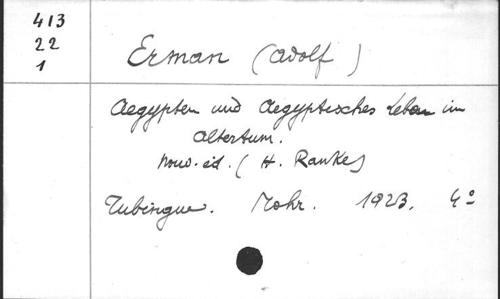 413
22
1
Erman (Adolf)
Aegypten und Aegyptisches Leben im
Altertum.
nouv. éd. (H. Ranke)
Tubingue. Mohr. 1923. 4°